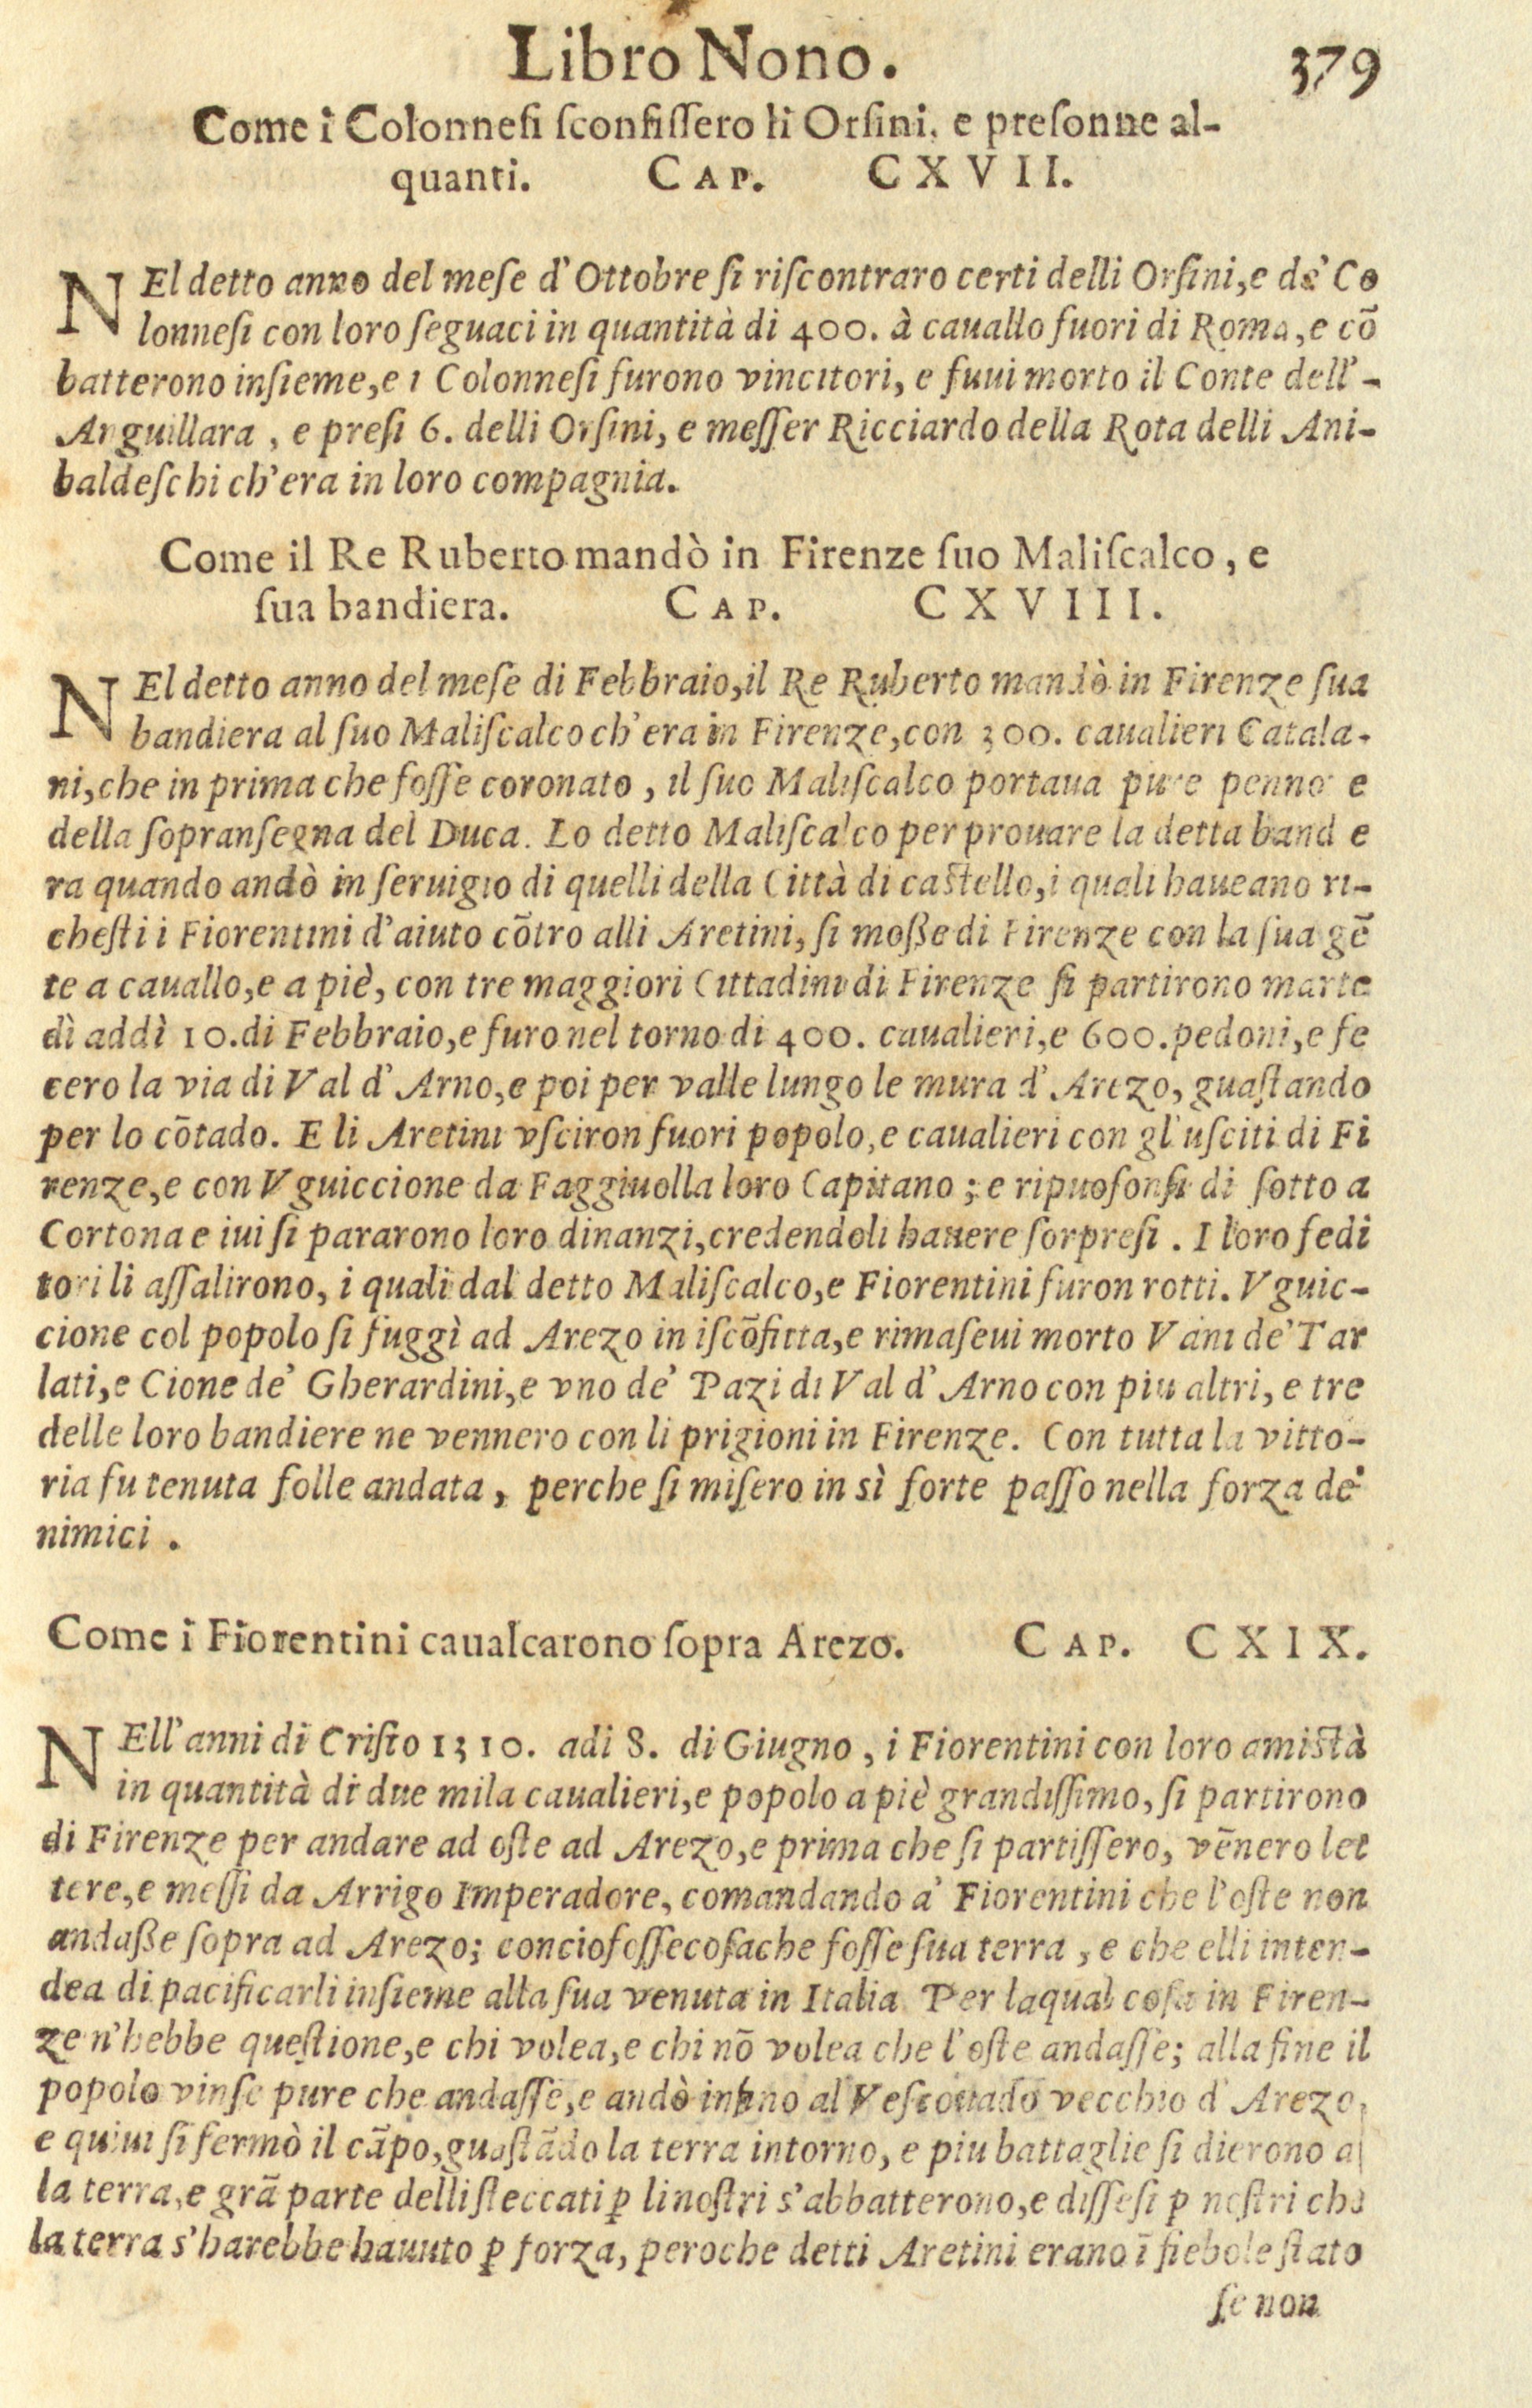 Libro Nono. 379
Come i Colonnesi sconfissero li Orsini, e presonne al-
quanti. CAP. CXVII.
NEl detto anno del mese d'Ottobre si riscontraro certi delli Orsini,e de' Co
lonnesi con loro seguaci in quantità di 400. à cauallo fuori di Roma,e cō
batterono insieme,e i Colonnesi furono vincitori, e fuui morto il Conte dell'-
Anguillara , e presi 6. delli Orsini, e messer Ricciardo della Rota delli Ani-
baldeschi ch'era in loro compagnia.
Come il Re Ruberto mandò in Firenze suo Maliscalco , e
sua bandiera. CAP. CXVIII.
NEl detto anno del mese di Febbraio,il Re Ruberto mandò in Firenze sua
bandiera al suo Maliscalco ch'era in Firenze,con 300. caualieri Catala-
ni,che in prima che fosse coronato , il suo Maliscalco portaua pure penno e
della sopransegna del Duca. Lo detto Maliscalco per prouare la detta band e
ra quando andò in seruigio di quelli della Città di castello,i quali haueano ri-
chesti i Fiorentini d'aiuto cōtro alli Aretini, si moße di Firenze con la sua gē
te a cauallo,e a piè, con tre maggiori Cittadini di Firenze si partirono marte
dì addì 10.di Febbraio,e furo nel torno di 400. caualieri,e 600.pedoni,e fe
cero la via di Val d'Arno,e poi per valle lungo le mura d'Arezo, guastando
per lo cōtado. E li Aretini vsciron fuori popolo,e caualieri con gl'usciti di Fi
renze,e con Vguiccione da Faggiuolla loro Capitano ; e ripuosonsi di sotto a
Cortona e iui si pararono loro dinanzi,credendoli hauere sorpresi . I loro fedi
tori li assalirono, i quali dal detto Maliscalco,e Fiorentini furon rotti. Vguic-
cione col popolo si fuggì ad Arezo in iscōfitta,e rimaseui morto Vani de'Tar
lati,e Cione de' Gherardini,e vno de' Pazi di Val d'Arno con piu altri, e tre
delle loro bandiere ne vennero con li prigioni in Firenze. Con tutta la vitto-
ria fu tenuta folle andata , perche si misero in sì forte passo nella forza de'
nimici .
Come i Fiorentini caualcarono sopra Arezo. CAP. CXIX.
NEll'anni di Cristo 1310. adi 8. di Giugno , i Fiorentini con loro amistà
in quantità di due mila caualieri,e popolo a piè grandissimo, si partirono
di Firenze per andare ad oste ad Arezo,e prima che si partissero, vēnero let
tere,e messi da Arrigo Imperadore, comandando a' Fiorentini che l'oste non
andaße sopra ad Arezo; conciofossecosache fosse sua terra , e che elli inten-
dea di pacificarli insieme alla sua venuta in Italia Per laqual cosa in Firen-
ze n'hebbe questione,e chi volea,e chi nō volea che l'oste andasse; alla fine il
popolo vinse pure che andasse,e andò infino al Vescouado vecchio d'Arezo,
e quiui si fermò il cāpo,guastādo la terra intorno, e piu battaglie si dierono al
la terra,e grā parte delli steccati ꝑ li nostri s'abbatterono,e dissesi ꝑ nostri che
la terra s'harebbe hauuto ꝑ forza, peroche detti Aretini erano ī fiebole stato
se non